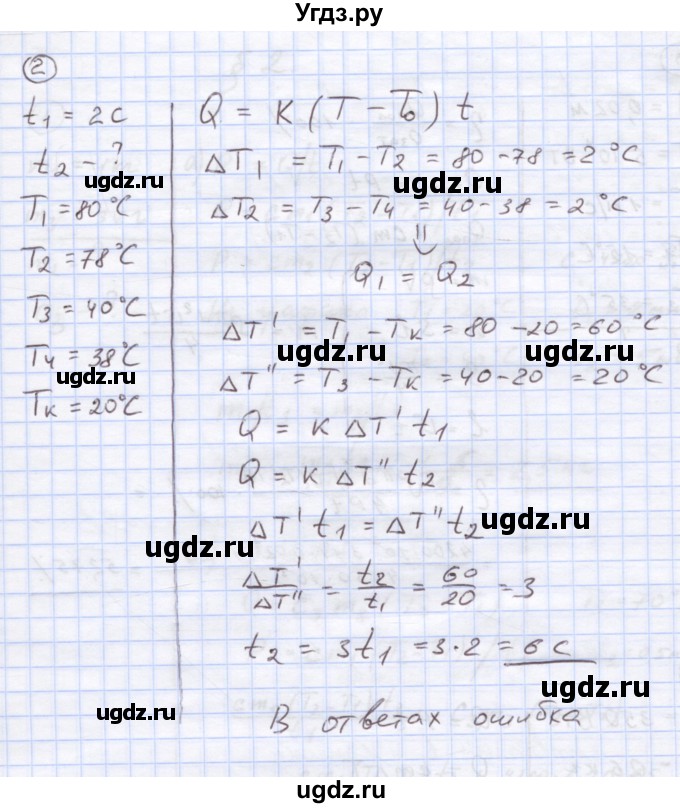 Угдз.ру
2
t₁ = 2c
t₂ - ?
T₁ = 80°C
T₂ = 78°C
T₃ = 40°C
T₄ = 38°C
Tк = 20°C
Q = K (T - T₀) t
ΔT₁ = T₁ - T₂ = 80 - 78 = 2°C
ΔT₂ = T₃ - T₄ = 40 - 38 = 2°C
⇓
Q₁ = Q₂
ΔT' = T₁ - Tк = 80 - 20 = 60°C
ΔT" = T₃ - Tк = 40 - 20 = 20°C
Q = K ΔT' t₁
Q = K ΔT" t₂
ΔT' t₁ = ΔT" t₂
ΔT'/ΔT" = t₂/t₁ = 60/20 = 3
t₂ = 3t₁ = 3·2 = 6 c
В ответах ошибка
ugdz.ru
ugdz.ru
ugdz.ru
ugdz.ru
ugdz.ru
ugdz.ru
ugdz.ru
ugdz.ru
ugdz.ru
ugdz.ru
ugdz.ru